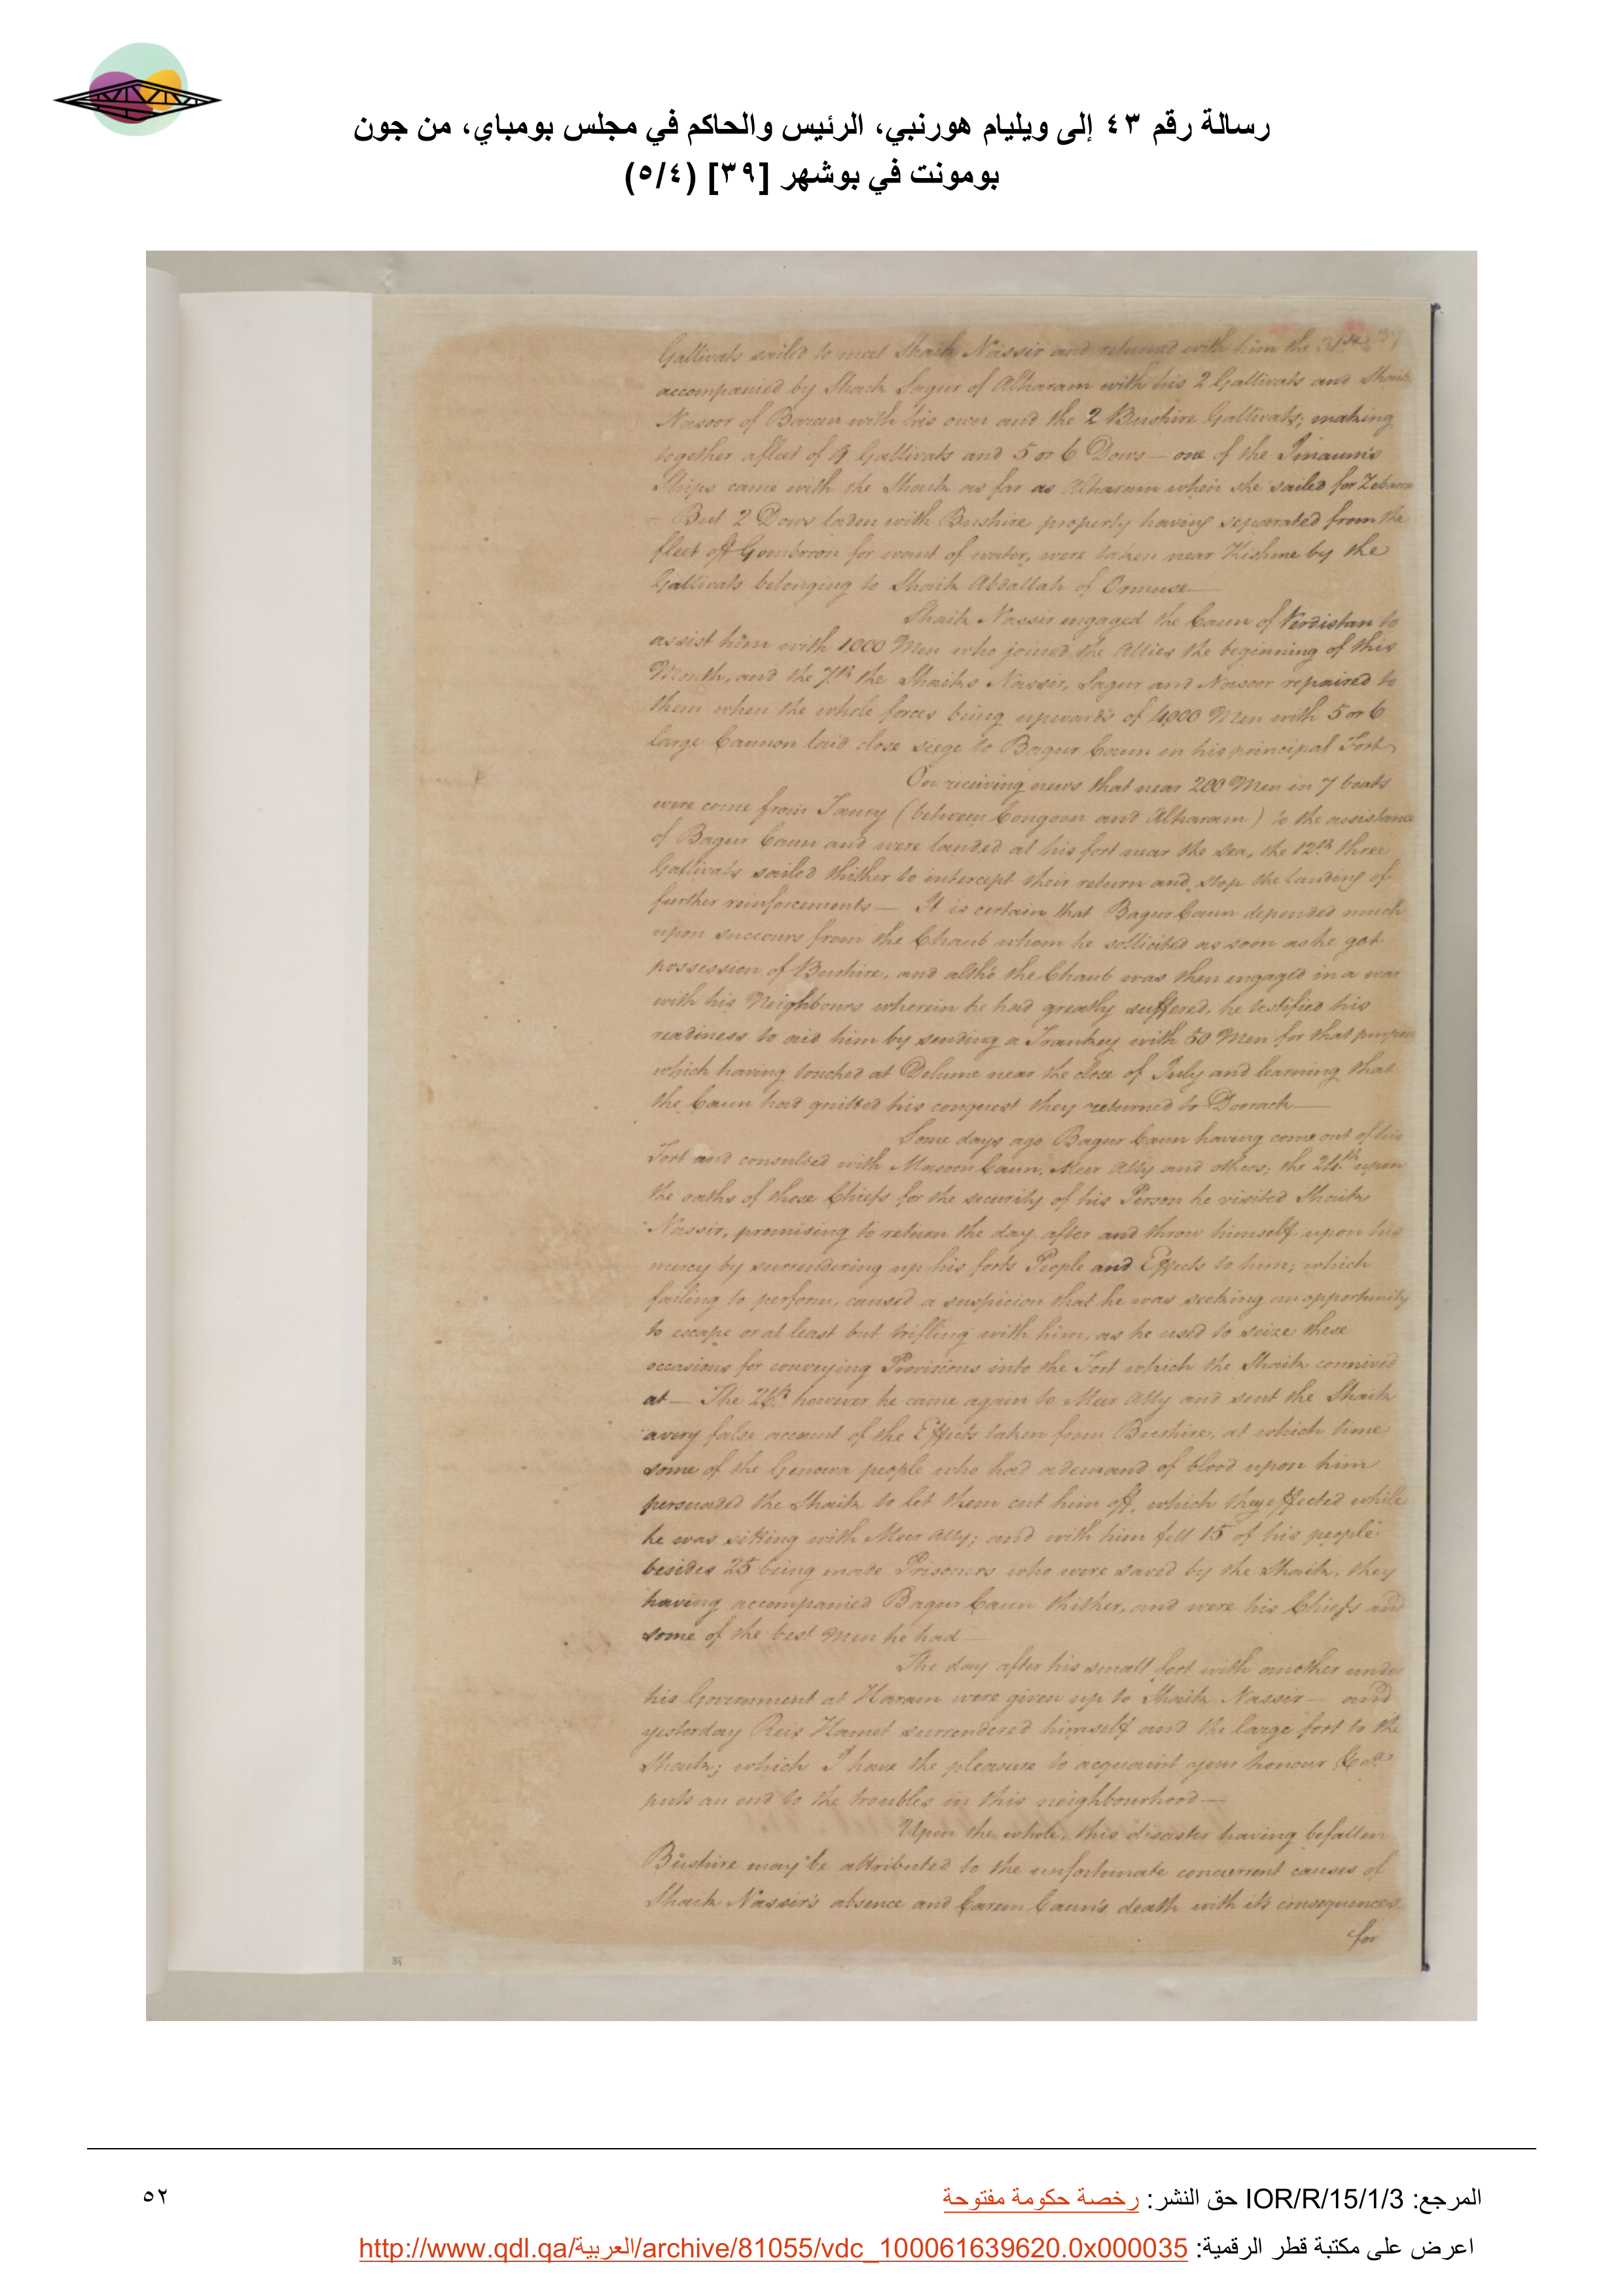 رسالة رقم ٤٣ إلى ويليام هورنبي، الرئيس والحاكم في مجلس بومباي، من جون
بومونت في بوشهر [٣٩] (٥/٤)
Gallivats sailed to meet Shaik Nassir and returned with him the 31st
accompanied by Shaik Sagur of Alharam with his 2 Gallivats and Shaik
Nasoor of Bareen with his own and the 2 Bushire Gallivats; making
together a fleet of 9 Gallivats and 5 or 6 Dows — one of the Imaum's
Ships came with the Shaik as far as Alharam when she sailed for Zebarra
- But 2 Dows laden with Bushire property having separated from the
fleet off Gombroon for want of water, were taken near Kishme by the
Gallivats belonging to Shaik Abdallah of Ormuse —
Shaik Nassir engaged the Caun of Verdistan to
assist him with 1000 Men who joined the Allies the beginning of this
Month, and the 7th the Shaiks Nassir, Sagur and Nasoor repaired to
them when the whole forces being upwards of 4000 Men with 5 or 6
large Cannon laid close siege to Bagur Caun in his principal Fort
On receiving news that near 200 Men in 7 boats
were come from Taury (between Congoon and Alharam) to the assistance
of Bagur Caun and were landed at his fort near the sea, the 12th three
Gallivats sailed thither to intercept their return and stop the landing of
further reinforcements — It is certain that Bagur Caun depended much
upon succours from the Chaub whom he sollicited as soon as he got
possession of Bushire, and altho the Chaub was then engaged in a war
with his Neighbours wherein he had greatly suffered, he testified his
readiness to aid him by sending a Trankey with 50 Men for that purpose
which having touched at Delume near the close of July and learning that
the Caun had quitted his conquest they returned to Doorack —
Some days ago Bagur Caun having come out of his
Fort and consulted with Masoon Caun, Meer Ally and others; the 24th upon
the oaths of those Chiefs for the security of his Person he visited Shaik
Nassir, promising to return the day after and throw himself upon his
mercy by surrendering up his forts People and Effects to him; which
failing to perform, caused a suspicion that he was seeking an opportunity
to escape or at least but trifling with him, as he used to seize these
occasions for conveying Provisions into the Fort which the Shaik connived
at — The 26th however he came again to Meer Ally and sent the Shaik
a very false account of the Effects taken from Bushire, at which time
some of the Genowa people who had a demand of blood upon him
persuaded the Shaik to let them cut him off, which they effected while
he was sitting with Meer Ally; and with him fell 15 of his people
besides 25 being made Prisoners who were saved by the Shaik, they
having accompanied Bagur Caun thither, and were his Chiefs and
some of the best Men he had —
The day after his small fort with another under
his Government at Haram were given up to Shaik Nassir — and
yesterday Reis Hamet surrendered himself and the large fort to the
Shaik; which I have the pleasure to acquaint your honour &ca
puts an end to the troubles in this neighbourhood —
Upon the whole, this disaster having befallen
Bushire may be attributed to the unfortunate concurrent causes of
Shaik Nassir's absence and Carem Caun's death with its consequences
for
المرجع: IOR/R/15/1/3 حق النشر: رخصة حكومة مفتوحة
٥٢
اعرض على مكتبة قطر الرقمية: http://www.qdl.qa/العربية/archive/81055/vdc_100061639620.0x000035